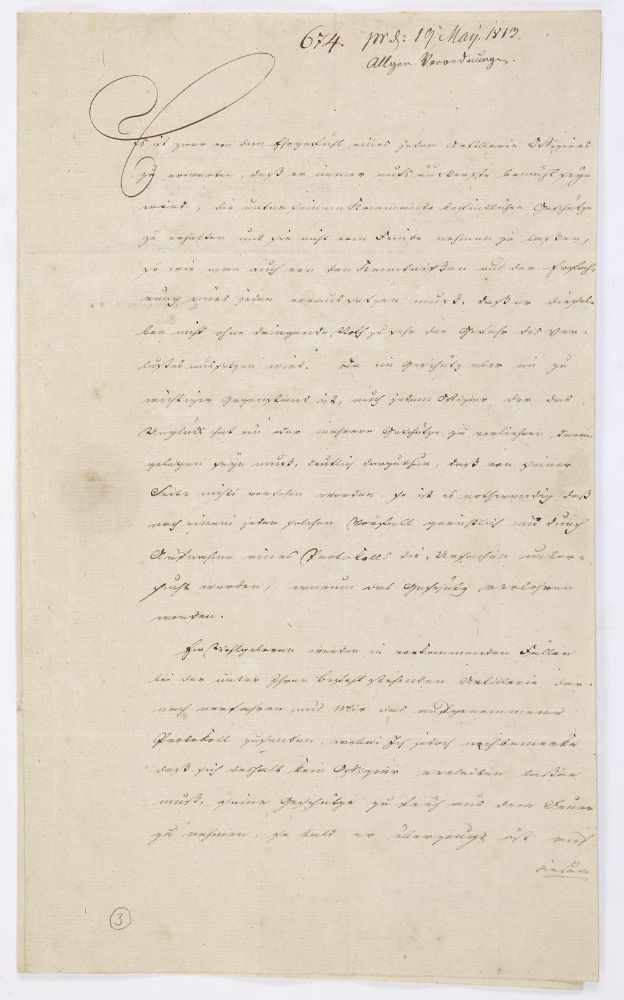 674. prd: 19 May. 1813.
Allgem Verordnungen.
Es ist zwar von dem Ehrgefühl eines jeden Artillerie Offiziers
zu erwarten, daß er immer aufs äußerste bemüht seyn
wird, die unter seinem Kommando befindlichen Geschütze
zu erhalten und sie nicht vom Feinde nehmen zu lassen,
so wie man auch von den Kenntnißen und der Erfah-
rung eines jeden voraussetzen muß, daß er diesel-
ben nicht ohne dringende Noth zu sehr der Gefahr des Ver-
lustes aussetzen wird. Da ein Geschütz aber ein zu
wichtiger Gegenstand ist, auch jedem Offizier der das
Unglück hat ein oder mehrere Geschütze zu verliehren, daran
gelegen seyn muß, deutlich darzuthun, daß von seiner
Seite nichts versehen worden, so ist es nothwendig daß
nach einem jeden solchen Vorfall gerichtlich und durch
Aufnahme eines Protokolls die Ursachen unter-
sucht werden, warum das Geschütz verlohren
worden.
Ew Wohlgeboren werden in vorkommenden Fällen
bei der unter Ihrem Befehl stehenden Artillerie dar-
nach verfahren, und Mir das aufgenommene
Protokoll zusenden, wobei Ich jedoch noch bemerke
daß sich deshalb kein Offizier verleiten laßen
muß, seine Geschütze zu früh aus dem Feuer
zu nehmen, so bald er überzeugt ist mit
diesem
3